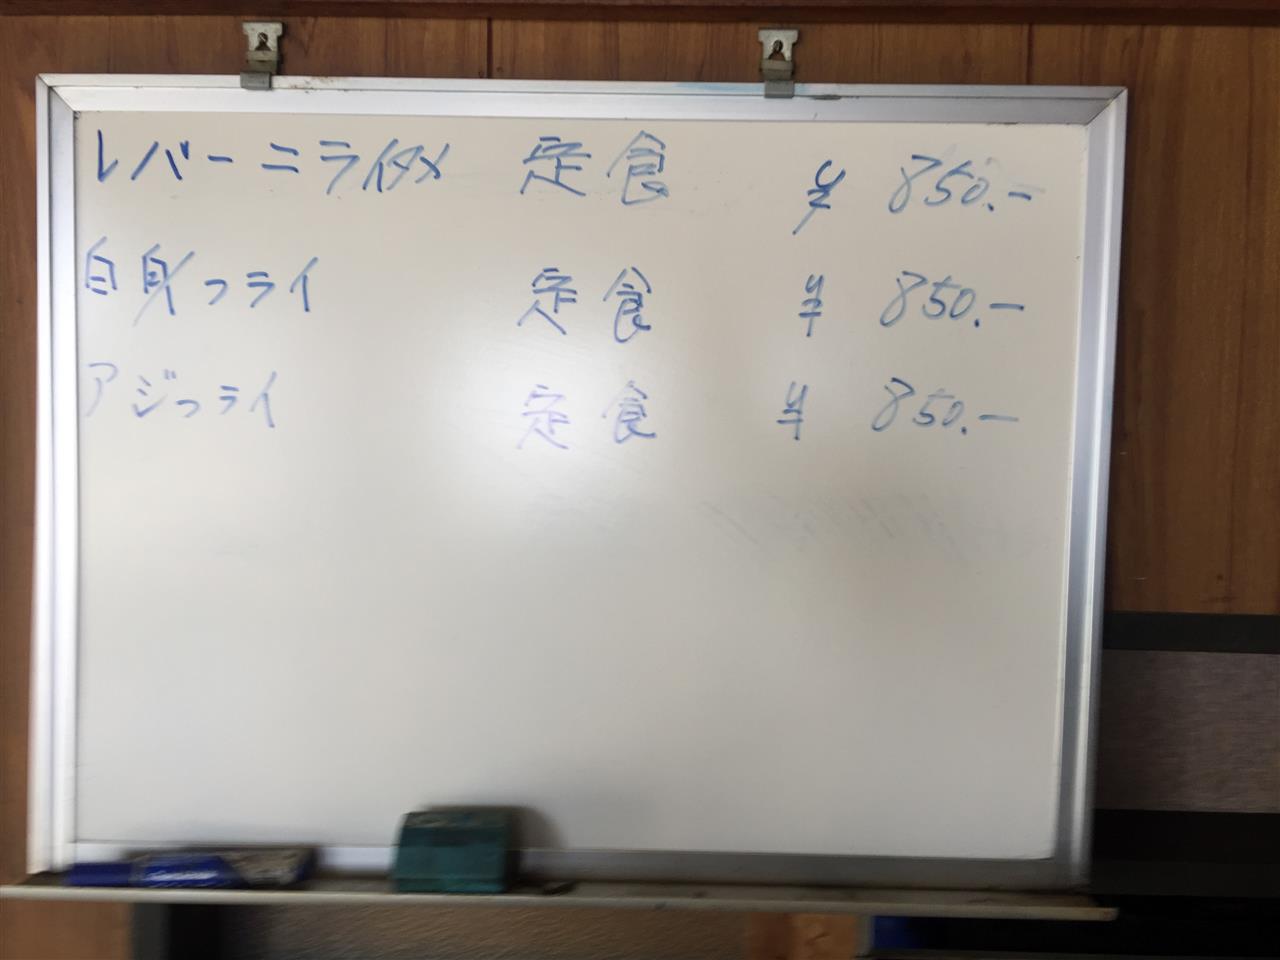 レバーニライタメ 定食 ¥ 850.-
白身フライ 定食 ¥ 850.-
アジフライ 定食 ¥ 850.-